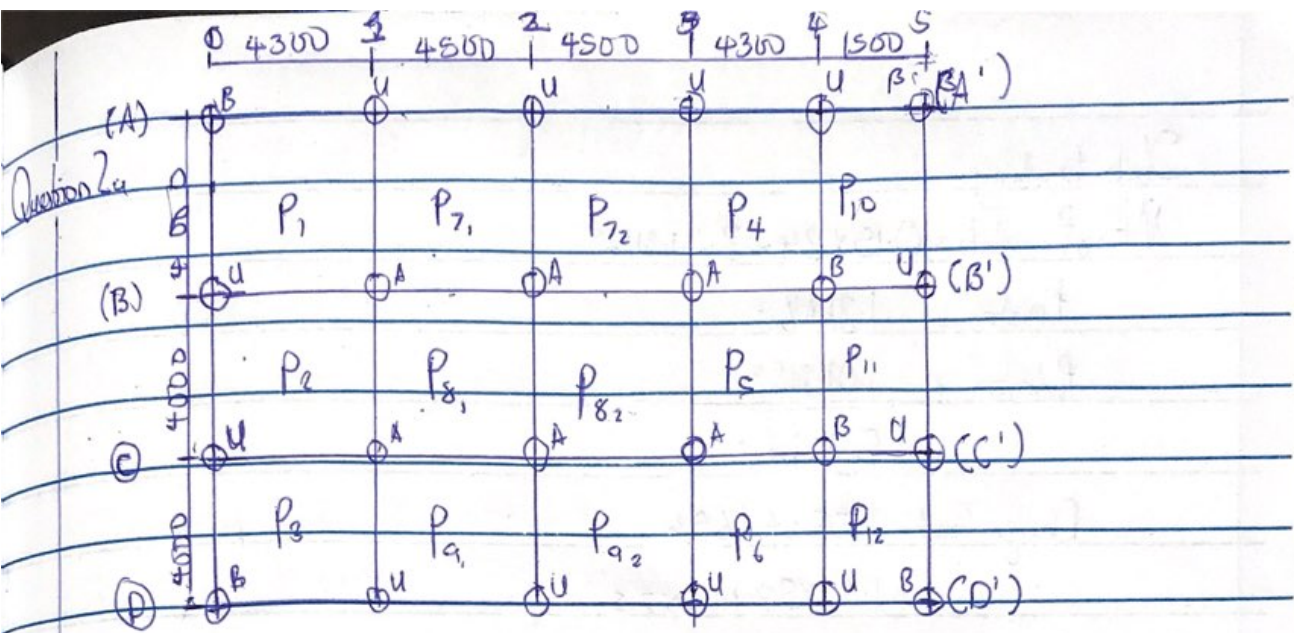 0 1 2 3 4 5
4300 4500 4500 4300 1500
(A) B U U U U B (A')
Question 2a
P₁ P₇₁ P₇₂ P₄ P₁₀
(B) U A A A B U (B')
4000 P₂ P₈₁ P₈₂ P₅ P₁₁
C U A A A B U (C')
4000 P₃ P₉₁ P₉₂ P₆ P₁₂
D B U U U U B (D')